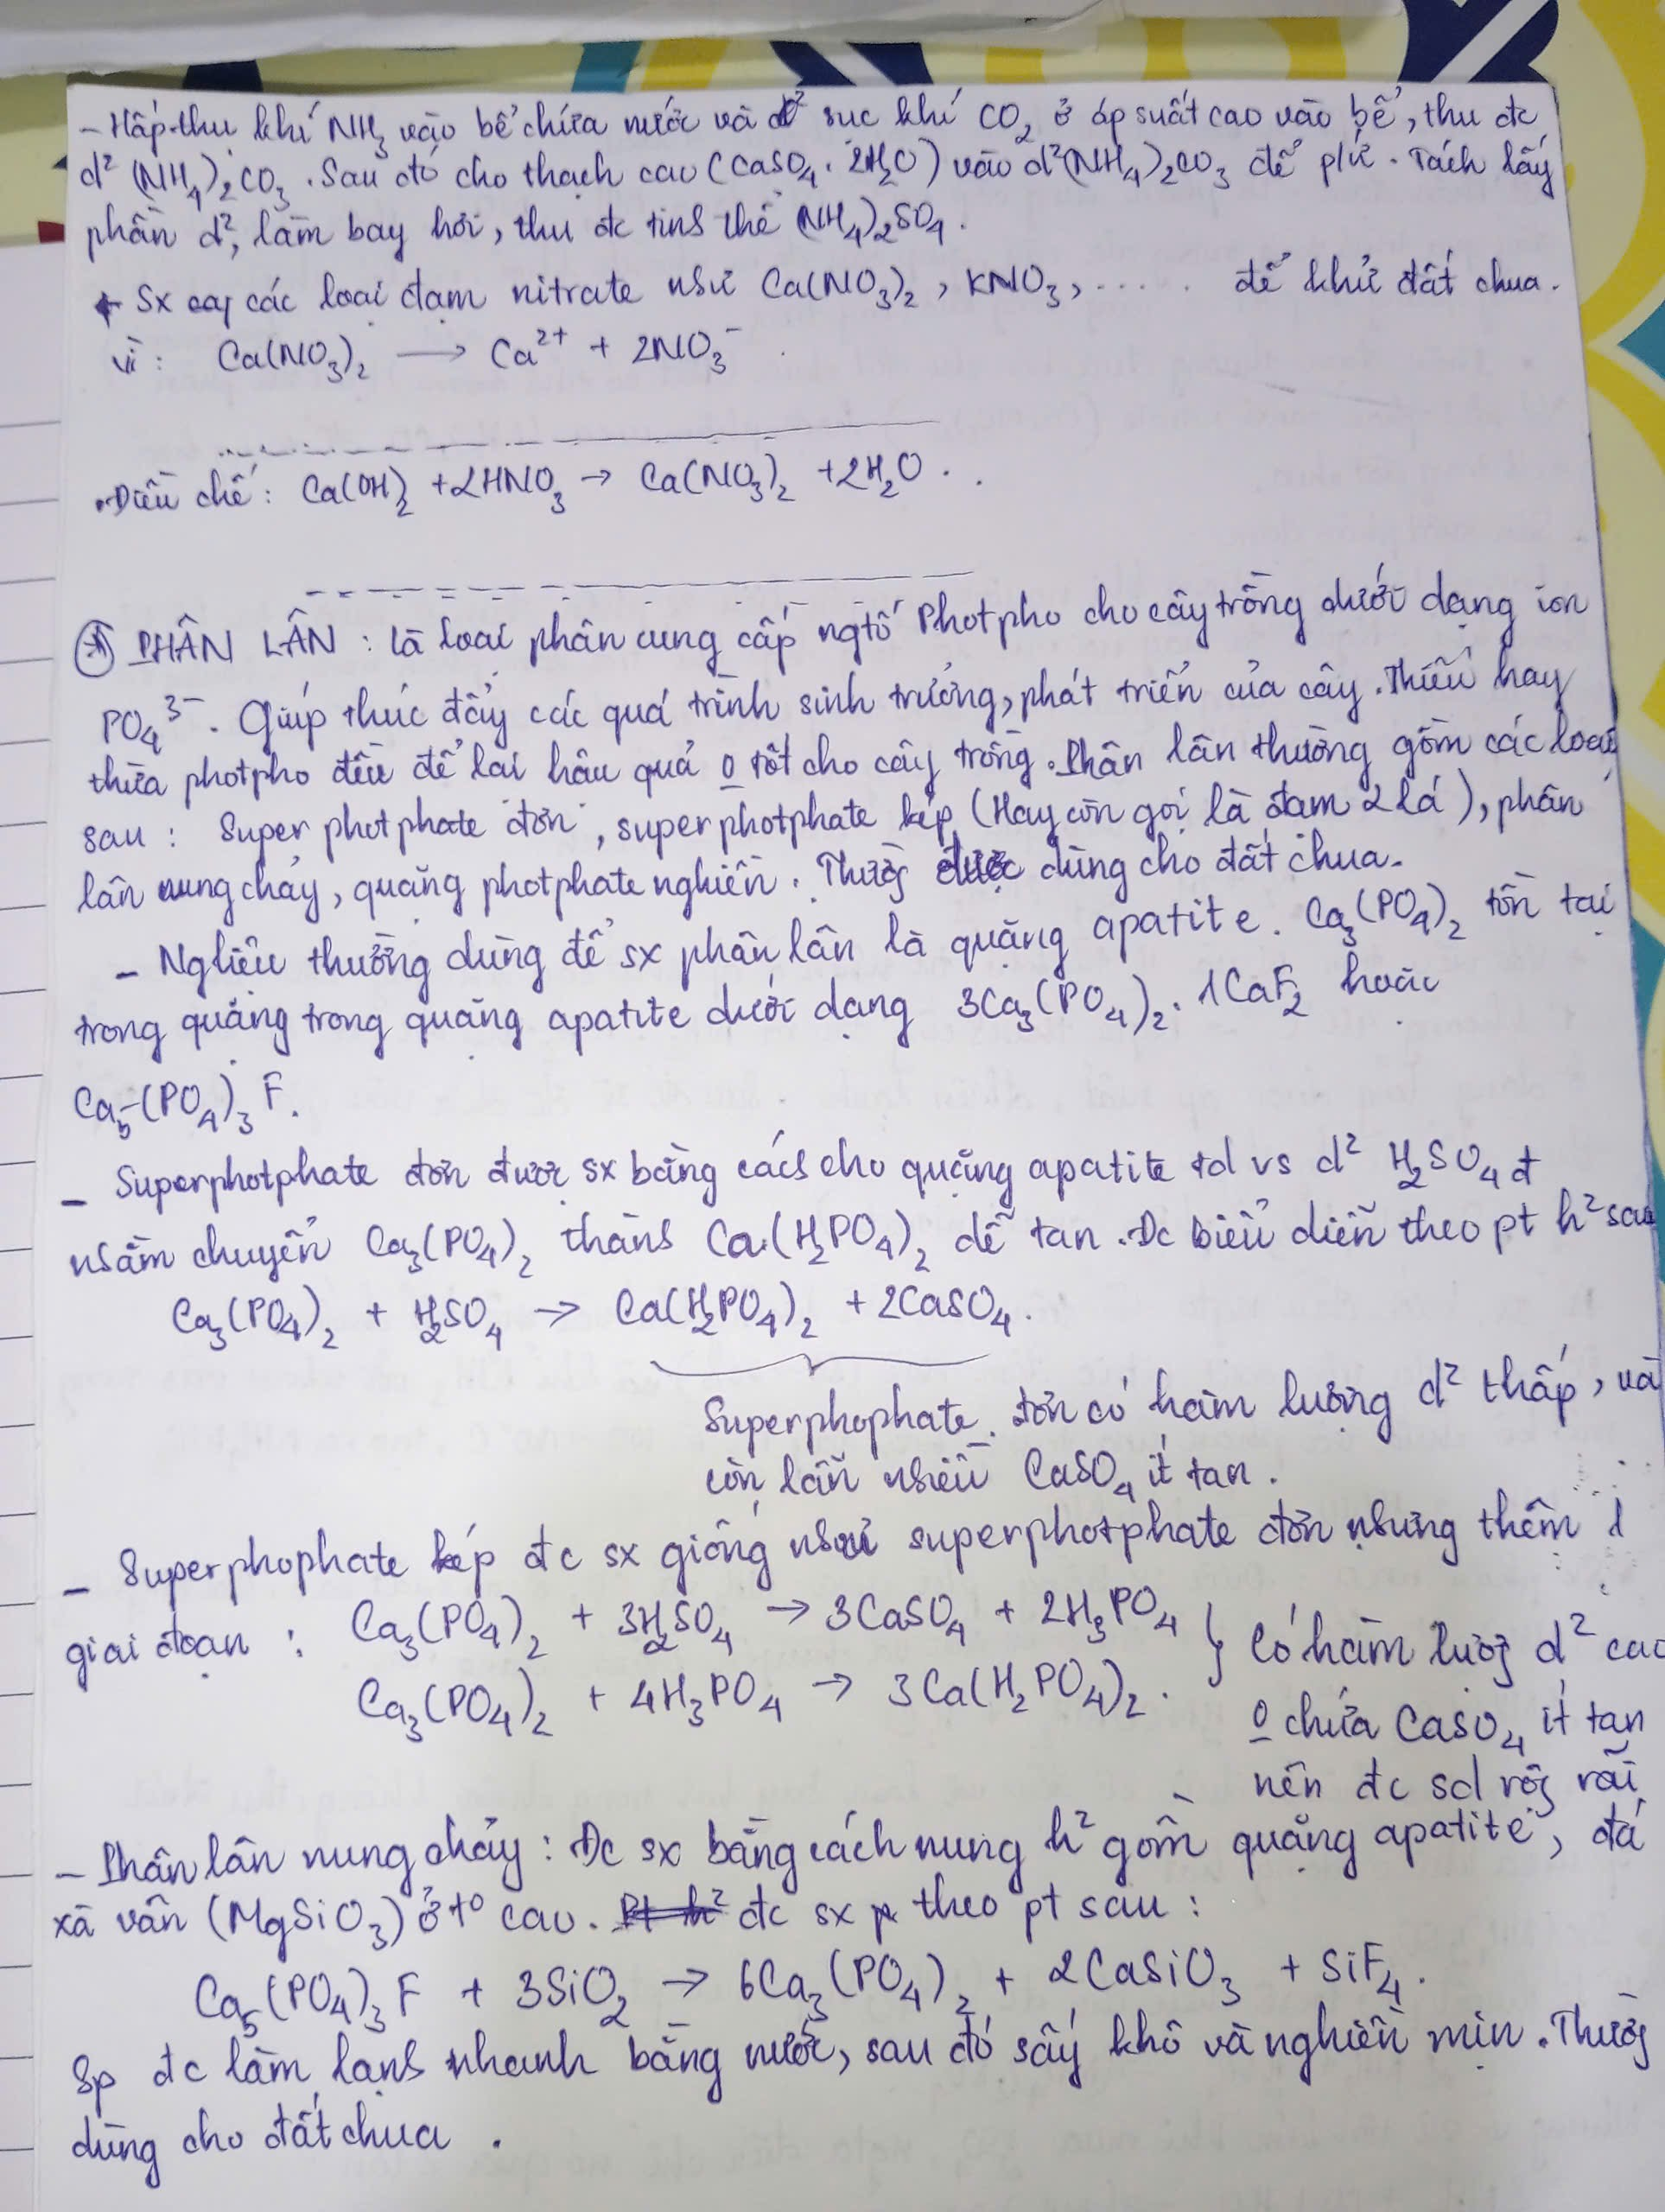 - Hấp thụ khí NH₃ vào bể chứa nước và sục khí CO₂ ở áp suất cao vào bể, thu đc
d² (NH₄)₂CO₃. Sau đó cho thạch cao (CaSO₄.2H₂O) vào d² (NH₄)₂CO₃ để p/ứ. Tách lấy
phần d², làm bay hơi, thu đc tinh thể (NH₄)₂SO₄.
+ Sx các loại đạm nitrate như Ca(NO₃)₂, KNO₃, ..... để khử đất chua.
vì: Ca(NO₃)₂ → Ca²⁺ + 2NO₃⁻
.Điều chế: Ca(OH)₂ + 2HNO₃ → Ca(NO₃)₂ + 2H₂O.
PHÂN LÂN: là loại phân cung cấp ngtố Photpho cho cây trồng dưới dạng ion
PO₄³⁻. Giúp thúc đẩy các quá trình sinh trưởng, phát triển của cây. Thiếu hay
thừa photpho đều để lại hậu quả 0 tốt cho cây trồng. Phân lân thường gồm các loại
sau: Super photphate đơn, superphotphate kép (Hay còn gọi là đạm 2 lá), phân
lân nung chảy, quặng photphate nghiền. Thườg được dùng cho đất chua.
- Ngliệu thường dùng để sx phân lân là quặng apatite. Ca₃(PO₄)₂ tồn tại
trong quặng trong quặng apatite dưới dạng 3Ca₃(PO₄)₂.1CaF₂ hoặc
Ca₅(PO₄)₃F.
- Superphotphate đơn được sx bằng cách cho quặng apatite td vs d² H₂SO₄ đ
nhằm chuyển Ca₃(PO₄)₂ thành Ca(H₂PO₄)₂ dễ tan. Đc biểu diễn theo pt h² sau
Ca₃(PO₄)₂ + H₂SO₄ → Ca(H₂PO₄)₂ + 2CaSO₄.
Superphophate đơn có hàm lượng d² thấp, và
còn lẫn nhiều CaSO₄ ít tan.
- Superphophate kép đc sx giống như superphotphate đơn nhưng thêm 1
giai đoạn: Ca₃(PO₄)₂ + 3H₂SO₄ → 3CaSO₄ + 2H₃PO₄ } Có hàm lượg d² cao
Ca₃(PO₄)₂ + 4H₃PO₄ → 3Ca(H₂PO₄)₂. 0 chứa CaSO₄ ít tan
nên đc sd rộg rãi
- Phân lân nung chảy: Đc sx bằng cách nung h² gồm quặng apatite, đá
xà vân (MgSiO₃) ở t⁰ cao. đc sx theo pt sau:
Ca₅(PO₄)₃F + 3SiO₂ → 6Ca₃(PO₄)₂ + 2CaSiO₃ + SiF₄.
Sp đc làm lạnh nhanh bằng nước, sau đó sấy khô và nghiền mịn. Thườg
dùng cho đất chua.